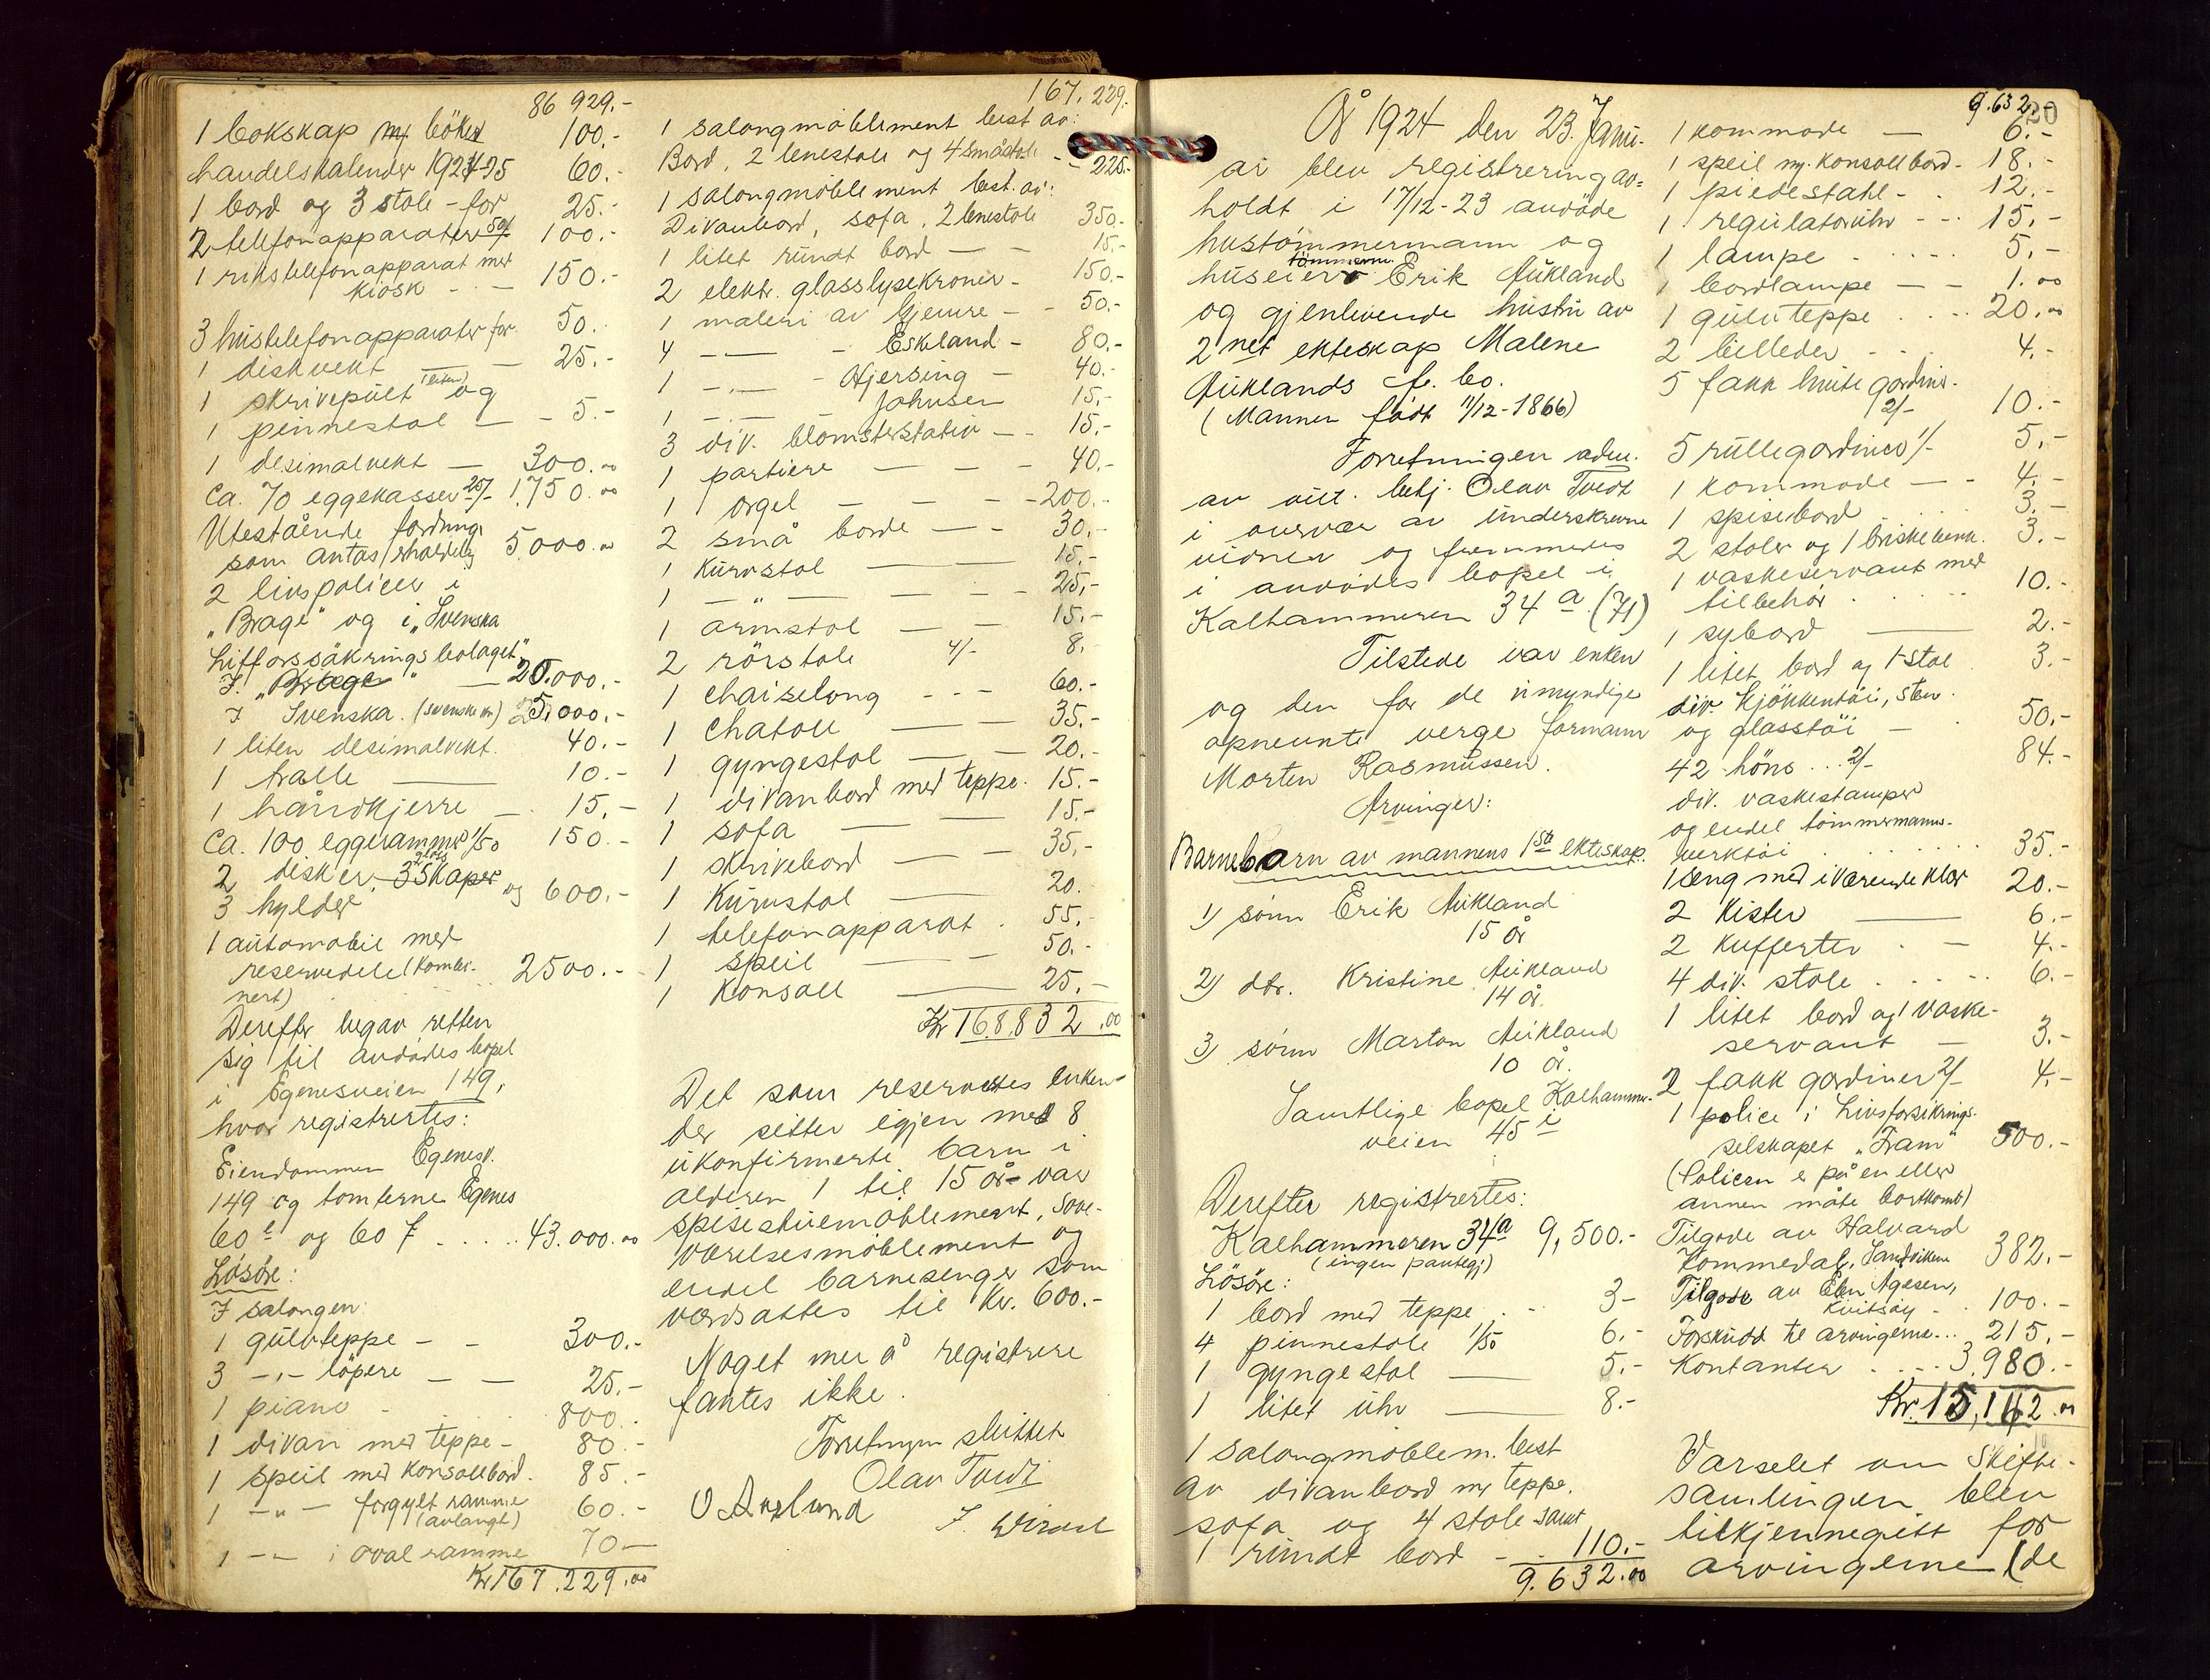 86 929.-
1 bokskap m/ böker 100.-
handelskalender 1924-25 60.-
1 bord og 3 stole - for 25.-
2 telefonapparater 50/- 100.-
1 rikstelefonapparat med
kiosk - - 150.-
3 hustelefonapparater for 50.-
1 diskvekt — - 25.-
1 skrivepult (liten) og
1 pinnestol — - 5.-
1 desimalvekt — 300.00
Ca. 70 eggekasser 25/- 1.750.00
Utestående fordring
som antas erholdelig 5000.00
2 livspolicer i
„Brage" og i „Svenska
Lifforssäkringsbolaget"
I. „Brage" — 20.000.-
I Svenska. (svenske kr) 25,000.-
1 liten desimalvekt. 40.-
1 tralle — 10.-
1 håndkjerre — 15.-
Ca. 100 eggerammer 1/50 150.-
2 disker, 3 Skaper
3 hylder og 600.-
1 automobil med
reservedele (kombi-
nert) 2500.-
Derefter begav retten
sig til avdødes bopel
i Egenesveien 149,
hvor registrertes:
Eiendommen Egenesv.
149 og tomterne Egenes
60 e og 60 f .... 43.000.00
Lösöre:
I salongen:
1 gulvteppe - - 300.-
3 -,- löpere — — 25.-
1 piano - . . . 800.-
1 divan med teppe - 80.-
1 speil med Konsollbord. 85.-
1 -„- forgylt ramme
(avlangt) 60.-
1 -„- i oval ramme 70 —
Kr 167.229.00
167.229.-
1 salongmöblement best av:
Bord, 2 lenestole og 4 småstole - - 225.-
1 salongmöblement best. av:
Divanbord, sofa, 2 lenestole 350.-
1 litet rundt bord — - 15.-
2 elektr. glasslysekroner - 150.-
1 maleri av Gjemre - - 50.-
4 -„- - Eskeland - 80.-
1 -„- - Hjersing — 40.-
1 -„- Johnsen 15.-
3 div. blomsterstativ — - 15.-
1 partiere — — - 40.-
1 orgel — — - 200.-
2 små borde — - 30.-
1 Kurvstol — — 15.-
1 -„- — — - 25.-
1 armstol — — 15.-
2 rörstole 4/- 8.-
1 chaiselong - - - 60.-
1 chatoll — 35.-
1 gyngestol — - 20.-
1 divanbord med teppe. 15.-
1 sofa — — 15.-
1 skrivebord — - 35.-
1 Kurvstol — 20.
1 telefonapparat . 55.-
1 speil — - 50.-
1 Konsoll — 25.-
Kr 168.832.00
Det som reservertes enken
der sitter igjen med 8
ukonfirmerte barn i
alderen 1 til 15 år var
spisestuemöblement, Sove-
værelsesmöblement og
endel barnesenger som
værdsattes til Kr. 600.-
Noget mer å registrere
fantes ikke.
Forretningen sluttet
Olav Tvedt
20
År 1924 den 23. Janu-
ar blev registrering av-
holdt i 17/12-23 avdöde
hustömmermann og
huseier Erik Aukland
og gjenlevende hustru av
2net ekteskap Malene
Auklands f. bo.
(Mannen född 11/12-1866)
Forretningen adm.
av aut. betj. Olav Tvedt
i overvær av underskrevne
vidner og fremmedes
i avdödes bopel i
Kalhammeren 34 a. (71)
Tilstede var enken
og den for de umyndige
opnevnte verge formann
Morten Rasmussen.
Arvinger:
Barnebarn av mannens 1ste ekteskap.
1) sönn Erik Aukland
15 år
2) dtr. Kristine Aukland
14 år.
3) sönn Marton Aukland
10 år.
Samtlige bopel Kalhammer-
veien 45 i
Derefter registrertes:
Kalhammeren 34 a 9,500.-
(ingen pantegj)
Lösöre:
1 bord med teppe . - 3-
4 pinnestole 1/50 6.-
1 gyngestol — 5.-
1 litet uhr — 8.-
1 salongmöblem. best
av divanbord m/ teppe,
sofa og 4 stole samt
1 rundt bord - - 110.-
9.632.00
9.632.-
1 kommode — 6.-
1 speil m/. Konsollbord - 18.-
1 piedestahl - . 12.-
1 regulatoruhr - - - 15.-
1 lampe . . . . . 5.-
1 bordlampe — - 1.00
1 gulvteppe . . . . 20.00
2 billeder . . . 4.-
5 fakk hvite gardiner.
2/- 10.-
5 rullegardiner 1/- 5.-
1 kommode — - 4.-
1 spisebord . . . 3.-
2 stoler og 1 briskebenk. 3.-
1 vaskeservant med
tilbehör . . . 10.-
1 sybord — 2.-
1 litet bord og 1 stol 3.-
div. kjökkentöi, sten-
og glasstöi - 50.-
42 höns ... 2/- 84.-
div. vaskestamper
og endel tömmermanns-
verktöi . . . . 35.-
1 seng med iværende klær 20.-
2 Kister — 6.-
2 Kufferter . — 4.-
4 div. stole . . . 6.-
1 litet bord og 1 vaske-
servant — 3.-
2 fakk gardiner 2/- 4.-
1 police i Livsforsikrings-
selskapet „Fram" 500.-
(Policen er på en eller
annen måte bortkomt)
Tilgode av Halvard
Kommedal, Sandviken 382.-
Tilgode av Elen Agesen,
Kvitsöy - . 100.-
Forskudd til arvingerne... 215.-
Kontanter . . . . 3.980.-
Kr. 15,162.00
Varselet om Skifte-
samlingen blev
tilkjennegitt for
arvingerne (de